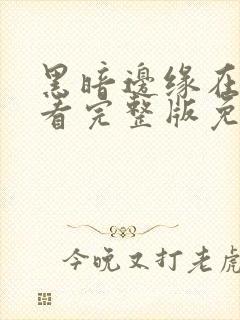 黑暗邊缘在
看完整版免
今晚又打老虎